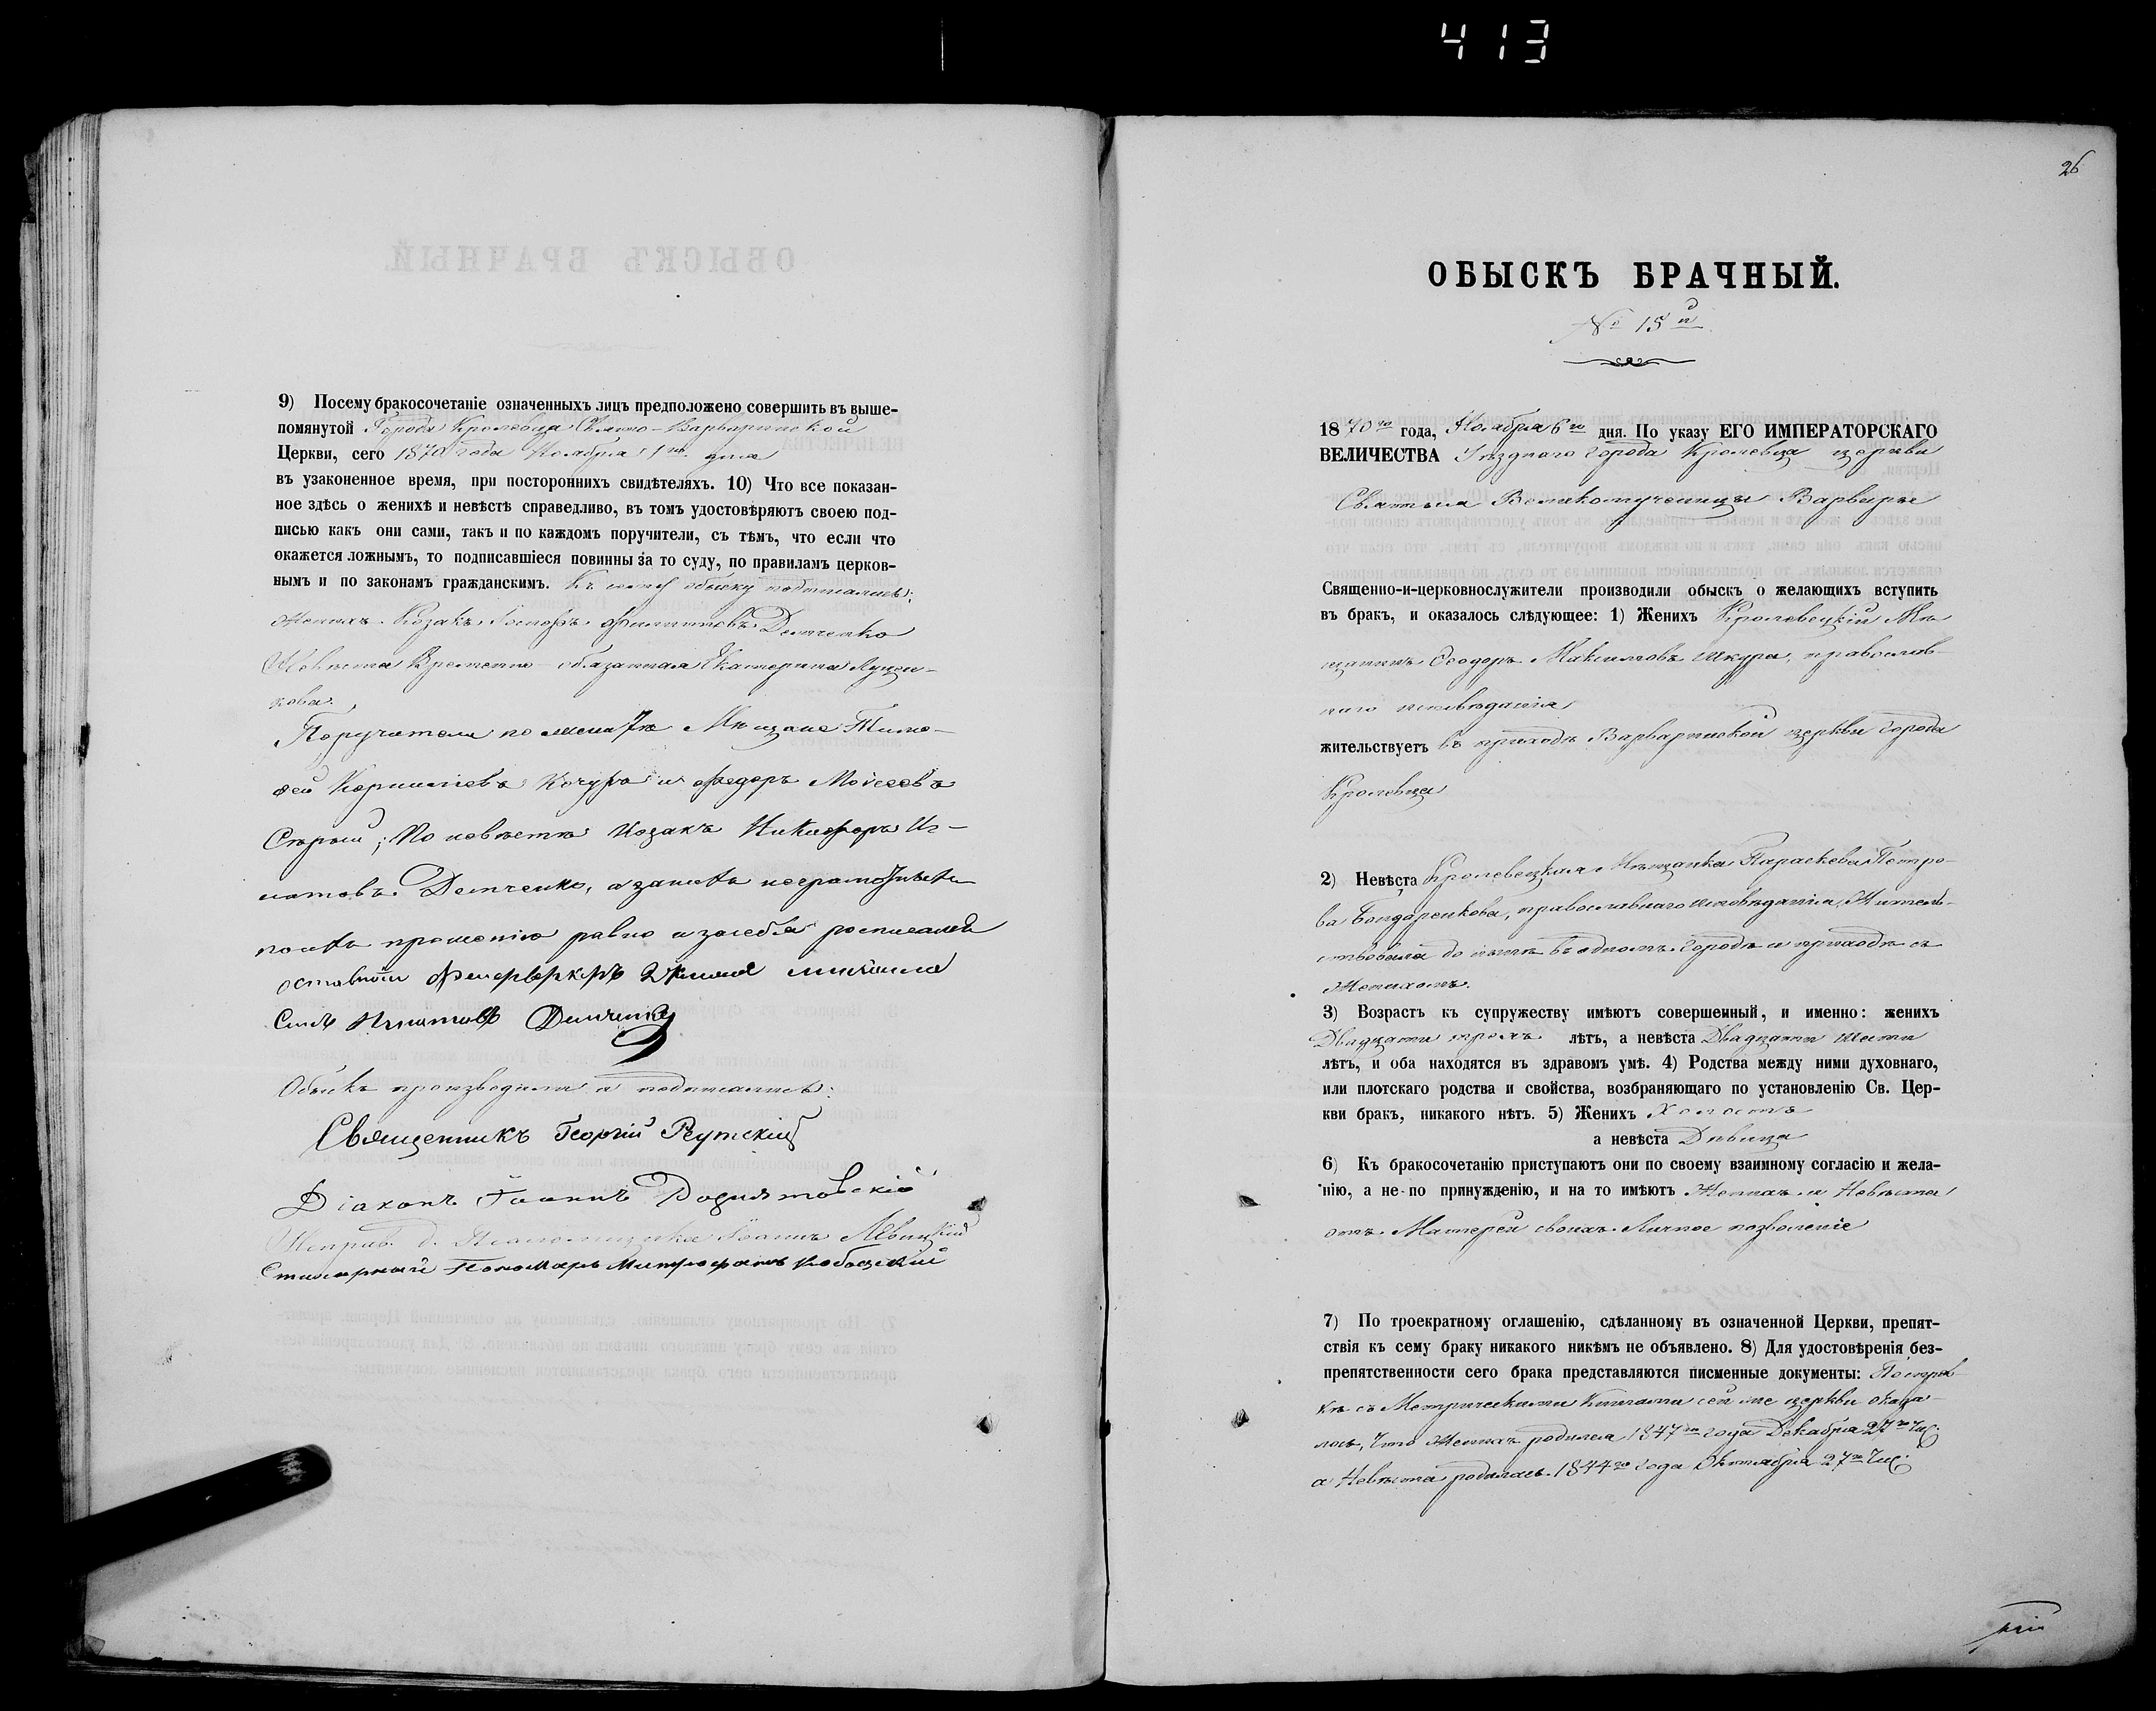 413
9) Посему бракосочетаніе означенныхъ лицъ предположено совершить въ выше-
помянутой Города Кролевца Свято-Варваринской
Церкви, сего 1870 года Ноября 1го дня
въ узаконенное время, при постороннихъ свидѣтеляхъ. 10) Что все показан-
ное здѣсь о женихѣ и невѣстѣ справедливо, въ томъ удостовѣряютъ своею под-
писью какъ они сами, такъ и по каждомъ поручители, съ тѣмъ, что если что
окажется ложнымъ, то подписавшіеся повинны за то суду, по правиламъ церков-
нымъ и по законамъ гражданскимъ. Къ сему обыску подписались:
Женихъ Козакъ Филипповъ Демченко
Невѣста Временно-обязанная Екатерина
Поручители по женихѣ Мѣщане Тимо-
фей Корнилiевъ Кочура и Федоръ Моисеевъ
Старый; По невѣстѣ Козакъ Никифоръ Иг-
натовъ Демченко, а за нихъ неграмотныхъ
по ихъ прошенію равно и за себя росписался
отставной Фейерверкеръ
Сынъ Игнатовъ Демченко
Обыскъ производили и подписались:
Священникъ Георгій Реутскій
Діаконъ Іоаннъ
Исправ. д. Псаломщика Іоаннъ Левицкій
Пономарь Митрофанъ
26
ОБЫСКЪ БРАЧНЫЙ.
№ 15й
1870го года, Ноября 6го дня. По указу ЕГО ИМПЕРАТОРСКАГО
ВЕЛИЧЕСТВА Уѣзднаго города Кролевца церкви
Святыя Великомученицы Варвары
Священно-и-церковнослужители производили обыскъ о желающихъ вступить
въ бракъ, и оказалось слѣдующее: 1) Женихъ Кролевецкій Мѣ-
щанинъ Феодоръ Максимовъ Шкура, православ-
наго исповѣданія
жительствуетъ въ приходѣ Варваринской церкви города
Кролевца
2) Невѣста Кролевецкая Мѣщанка Параскева Петро-
ва Бондаренкова, православнаго исповѣданія, Житель-
ствовала до нынѣ въ одномъ городѣ и приходѣ съ
Женихомъ.
3) Возрастъ къ супружеству имѣютъ совершенный, и именно: женихъ
Двадцати трехъ лѣтъ, а невѣста Двадцати шести
лѣтъ, и оба находятся въ здравомъ умѣ. 4) Родства между ними духовнаго,
или плотскаго родства и свойства, возбраняющаго по установленію Св. Цер-
кви бракъ, никакого нѣтъ. 5) Женихъ Холостъ
а невѣста Дѣвица
6) Къ бракосочетанію приступаютъ они по своему взаимному согласію и жела-
нію, а не-по принужденію, и на то имѣютъ Женихъ и Невѣста
отъ Матерей своихъ Личное позволеніе
7) По троекратному оглашенію, сдѣланному въ означенной Церкви, препят-
ствія къ сему браку никакого никѣмъ не объявлено. 8) Для удостовѣренія без-
препятственности сего брака представляются писменные документы: По справ-
кѣ съ Метрическими Книгами сей же церкви оказа-
лось, Что Женихъ родился 1847го года Декабря 27го чис.
а Невѣста родилась 1844го года Октября 27го чис.